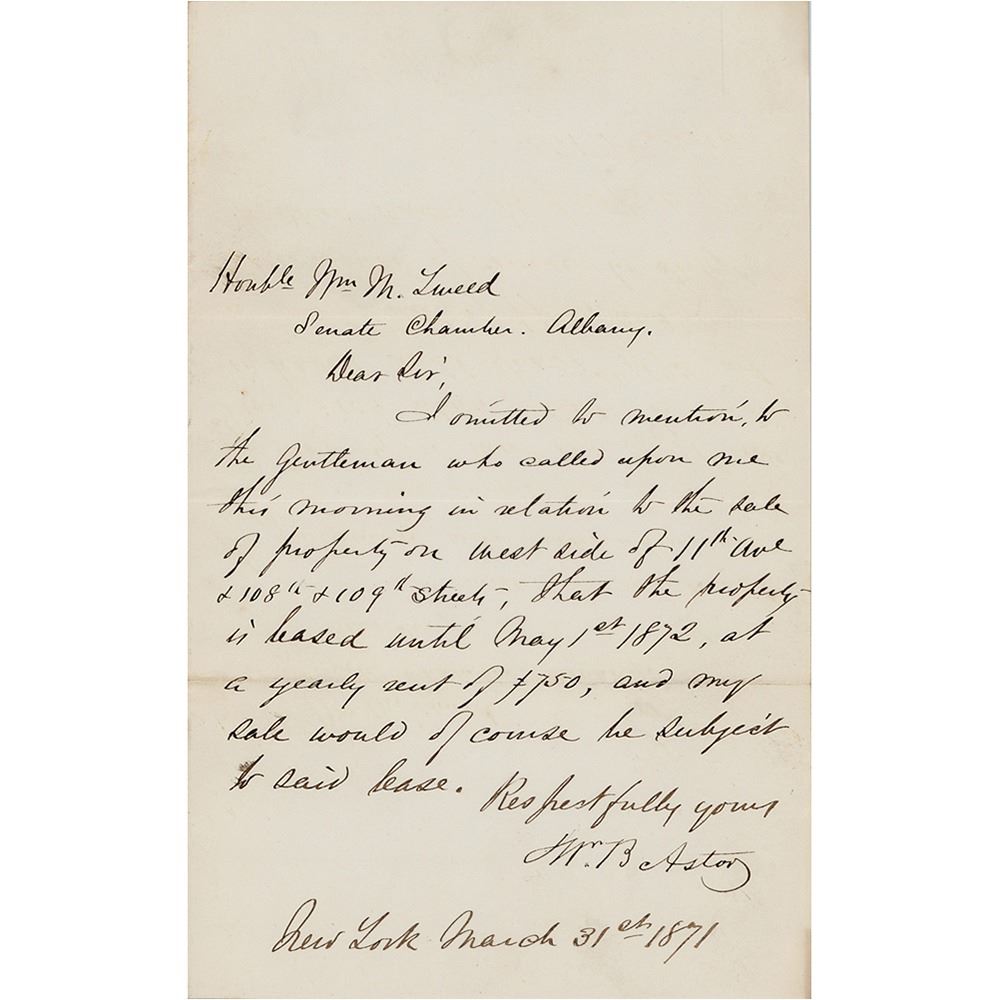 Honble Wm M. Tweed
Senate Chamber. Albany.
Dear Sir,
I omitted to mention, to
the Gentleman who called upon me
this morning in relation to the sale
of property on west side of 11th Ave
& 108th & 109th Streets, that the property
is leased until May 1st 1872, at
a yearly rent of $750, and my
sale would of course be subject
to said lease.
Respectfully yours
Wm. B Astor
New York March 31st 1871